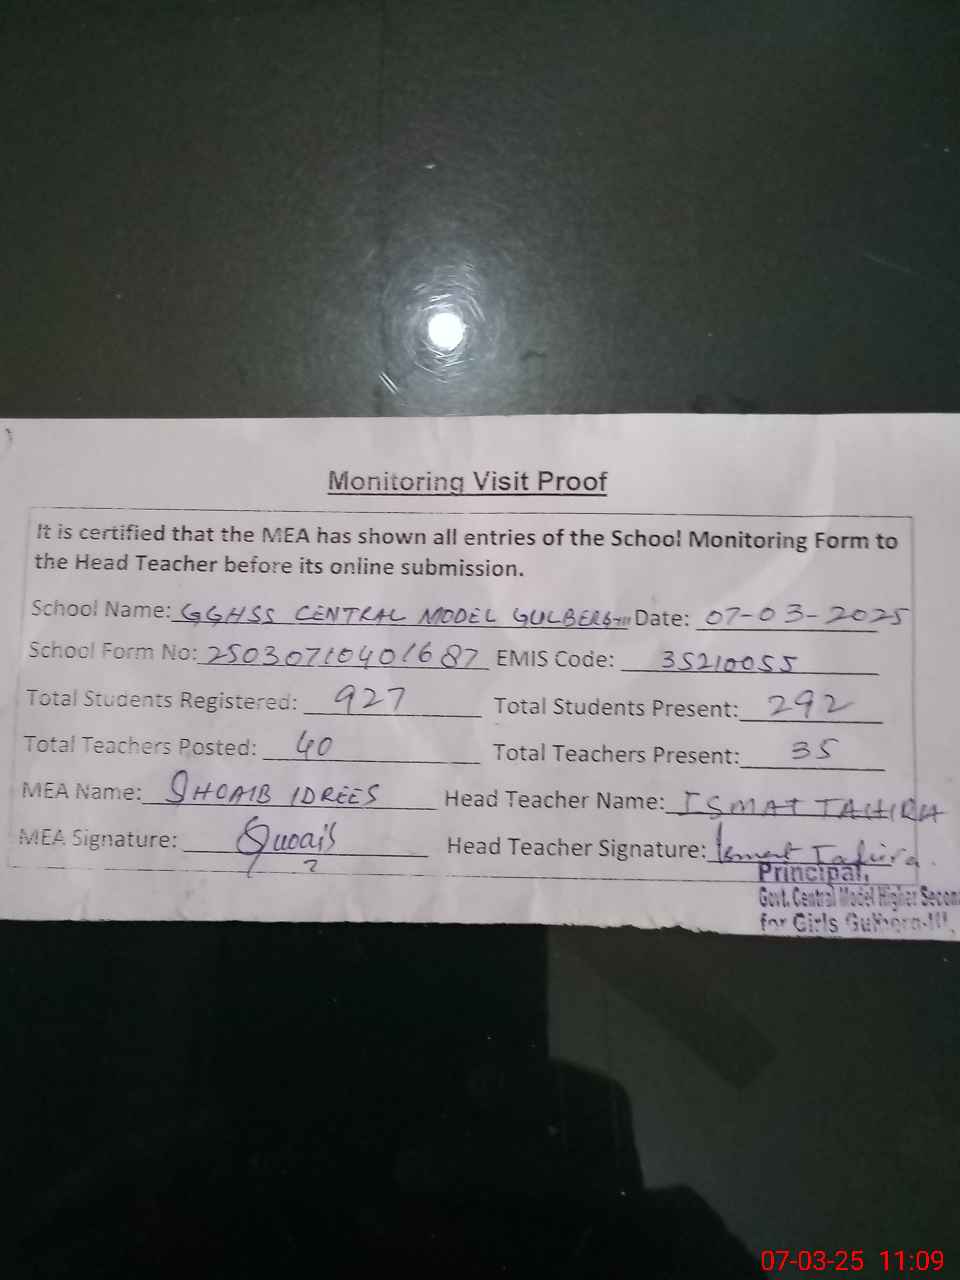 Monitoring Visit Proof
It is certified that the MEA has shown all entries of the School Monitoring Form to
the Head Teacher before its online submission.
School Name: GGHSS CENTRAL MODEL GULBERG-III Date: 07-03-2025
School Form No: 25030710401687 EMIS Code: 35210055
Total Students Registered: 927 Total Students Present: 292
Total Teachers Posted: 40 Total Teachers Present: 35
MEA Name: SHOAIB IDREES Head Teacher Name: ISMAT TAHIRA
MEA Signature: Head Teacher Signature: Ismat Tahira.
Principal,
Govt. Central Model Higher Secon
for Girls Gulberg-III,
07-03-25 11:09